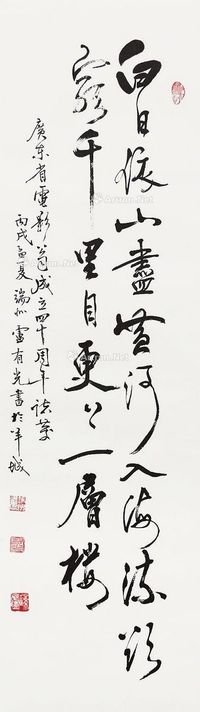 白日依山盡黃河入海流欲
窮千里目更上一層樓
廣東省電影公司成立四十周年誌慶
丙戌孟夏端州雷有光書於羊城